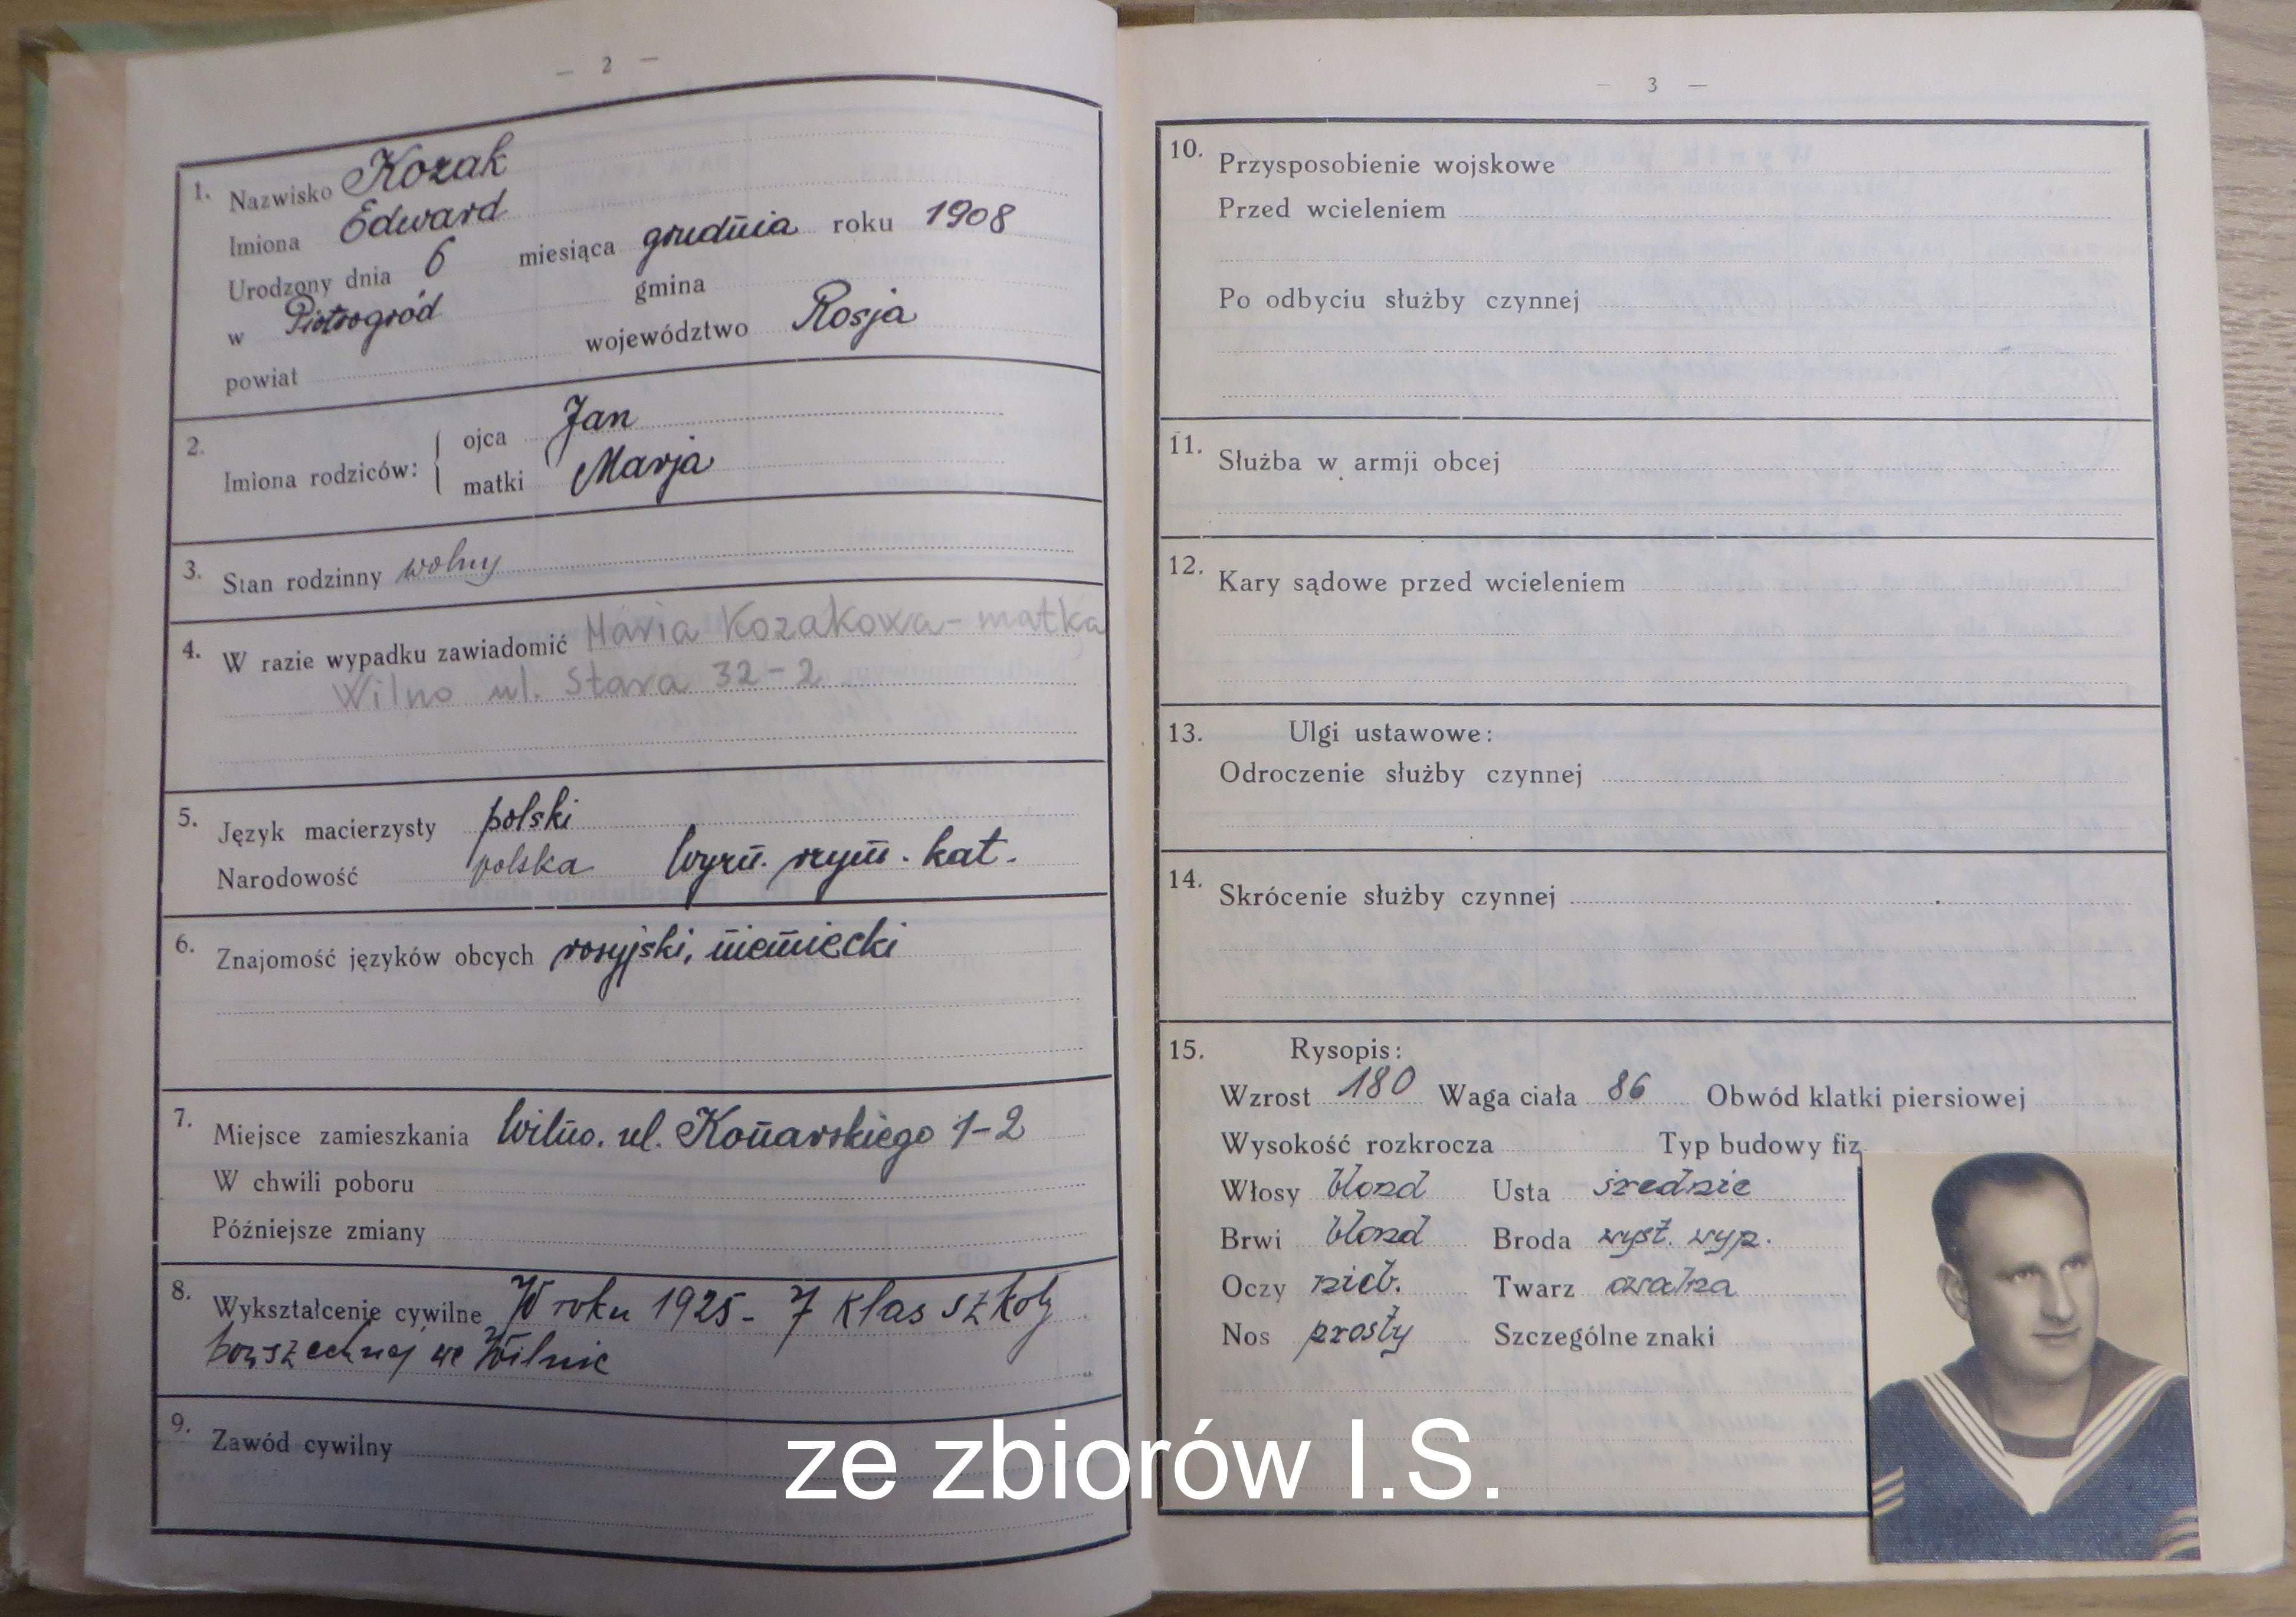 — 2 —
1. Nazwisko Kozak
Imiona Edward
Urodzony dnia 6 miesiąca grudnia roku 1908
w Piotrogród gmina
powiat województwo Rosja
2. Imiona rodziców: ojca Jan
matki Marja
3. Stan rodzinny wolny
4. W razie wypadku zawiadomić Maria Kozakowa - matka
Wilno ul. Stara 32-2
5. Język macierzysty polski
Narodowość polska wyzn. rzym. kat.
6. Znajomość języków obcych rosyjski, niemiecki
7. Miejsce zamieszkania Wilno. ul. Konarskiego 1-2
W chwili poboru
Późniejsze zmiany
8. Wykształcenie cywilne W roku 1925 - 7 klas szkoły
powszechnej we Wilnie
9. Zawód cywilny
— 3 —
10. Przysposobienie wojskowe
Przed wcieleniem
Po odbyciu służby czynnej
11. Służba w armji obcej
12. Kary sądowe przed wcieleniem
13. Ulgi ustawowe:
Odroczenie służby czynnej
14. Skrócenie służby czynnej
15. Rysopis:
Wzrost 180 Waga ciała 86 Obwód klatki piersiowej
Wysokość rozkrocza Typ budowy fiz
Włosy blond Usta średnie
Brwi blond Broda wyst. wyp.
Oczy nieb. Twarz owalna
Nos prosty Szczególne znaki
ze zbiorów I.S.